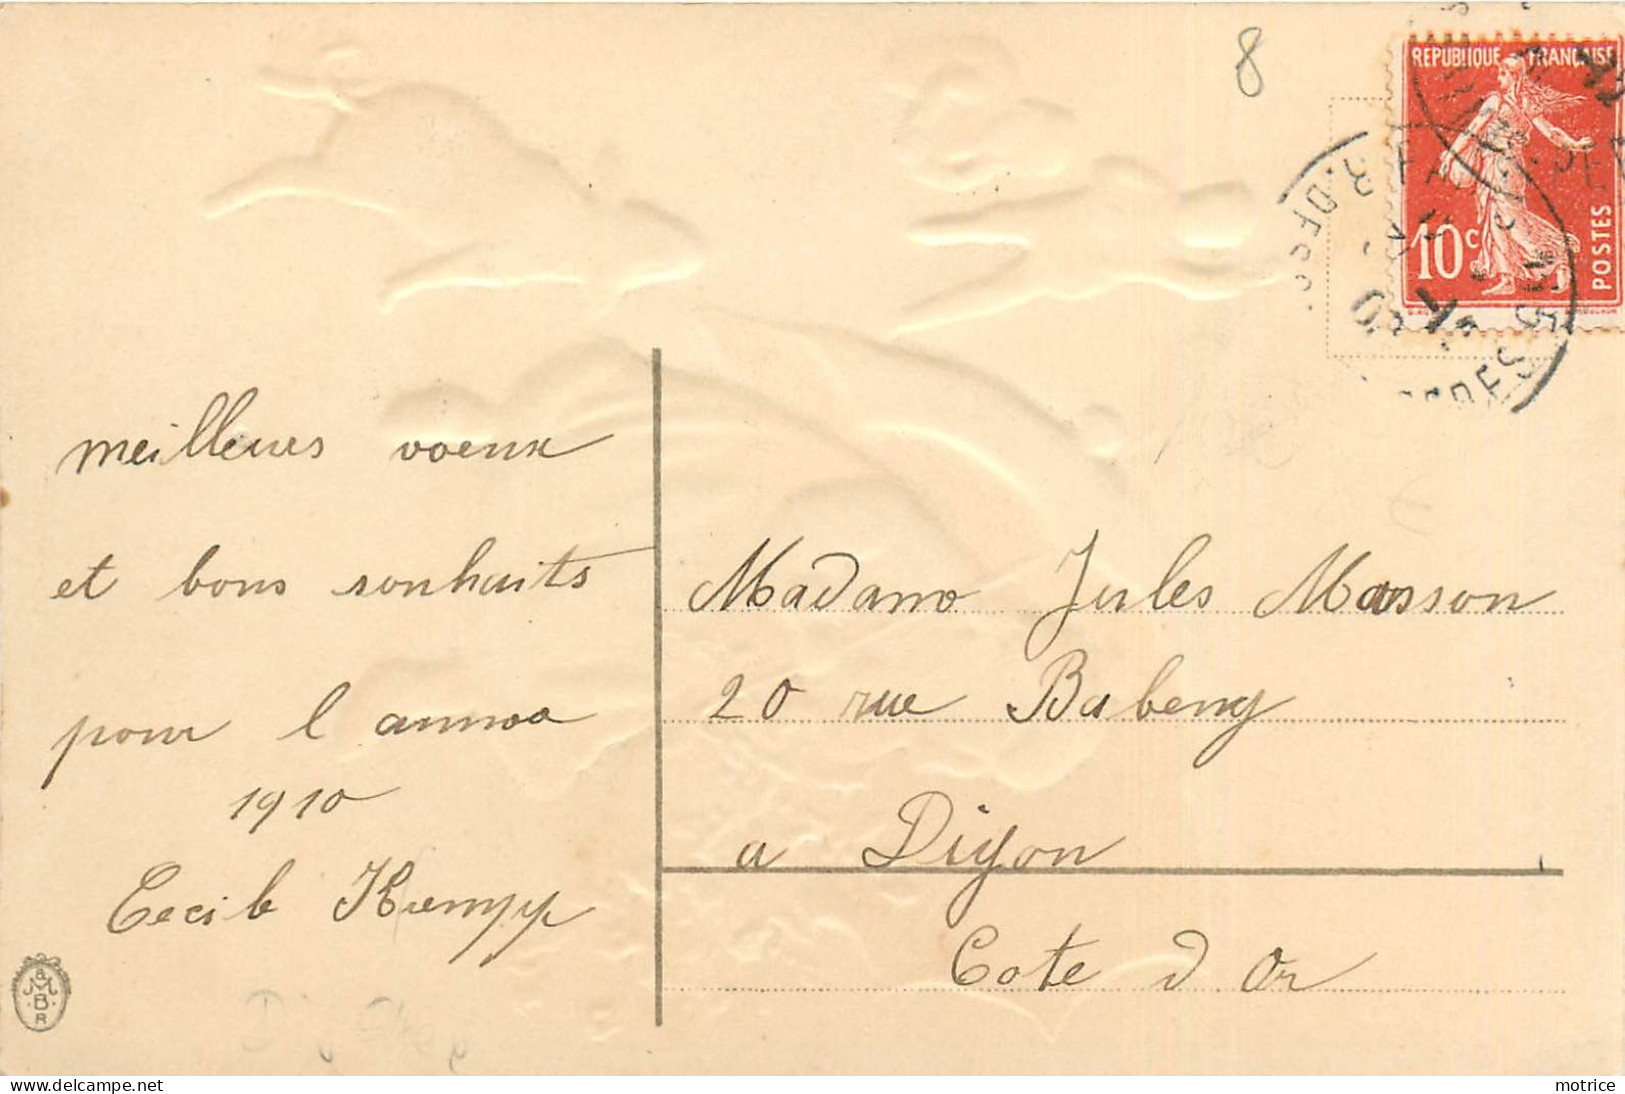 8
REPUBLIQUE FRANÇAISE
10c
POSTES
meilleurs voeux
et bons souhaits
pour l annee
1910
Cecile Krempp
Madame Jules Masson
20 rue Babeny
a Dijon
Cote d Or
M
B
R
delcampe.net
motrice